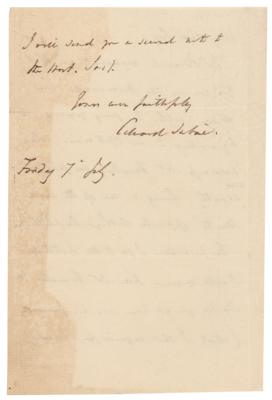 I will send you a second note to
the Hort. Soc.y.
Yours ever faithfully
Edward Sabine.
Friday 7 July.